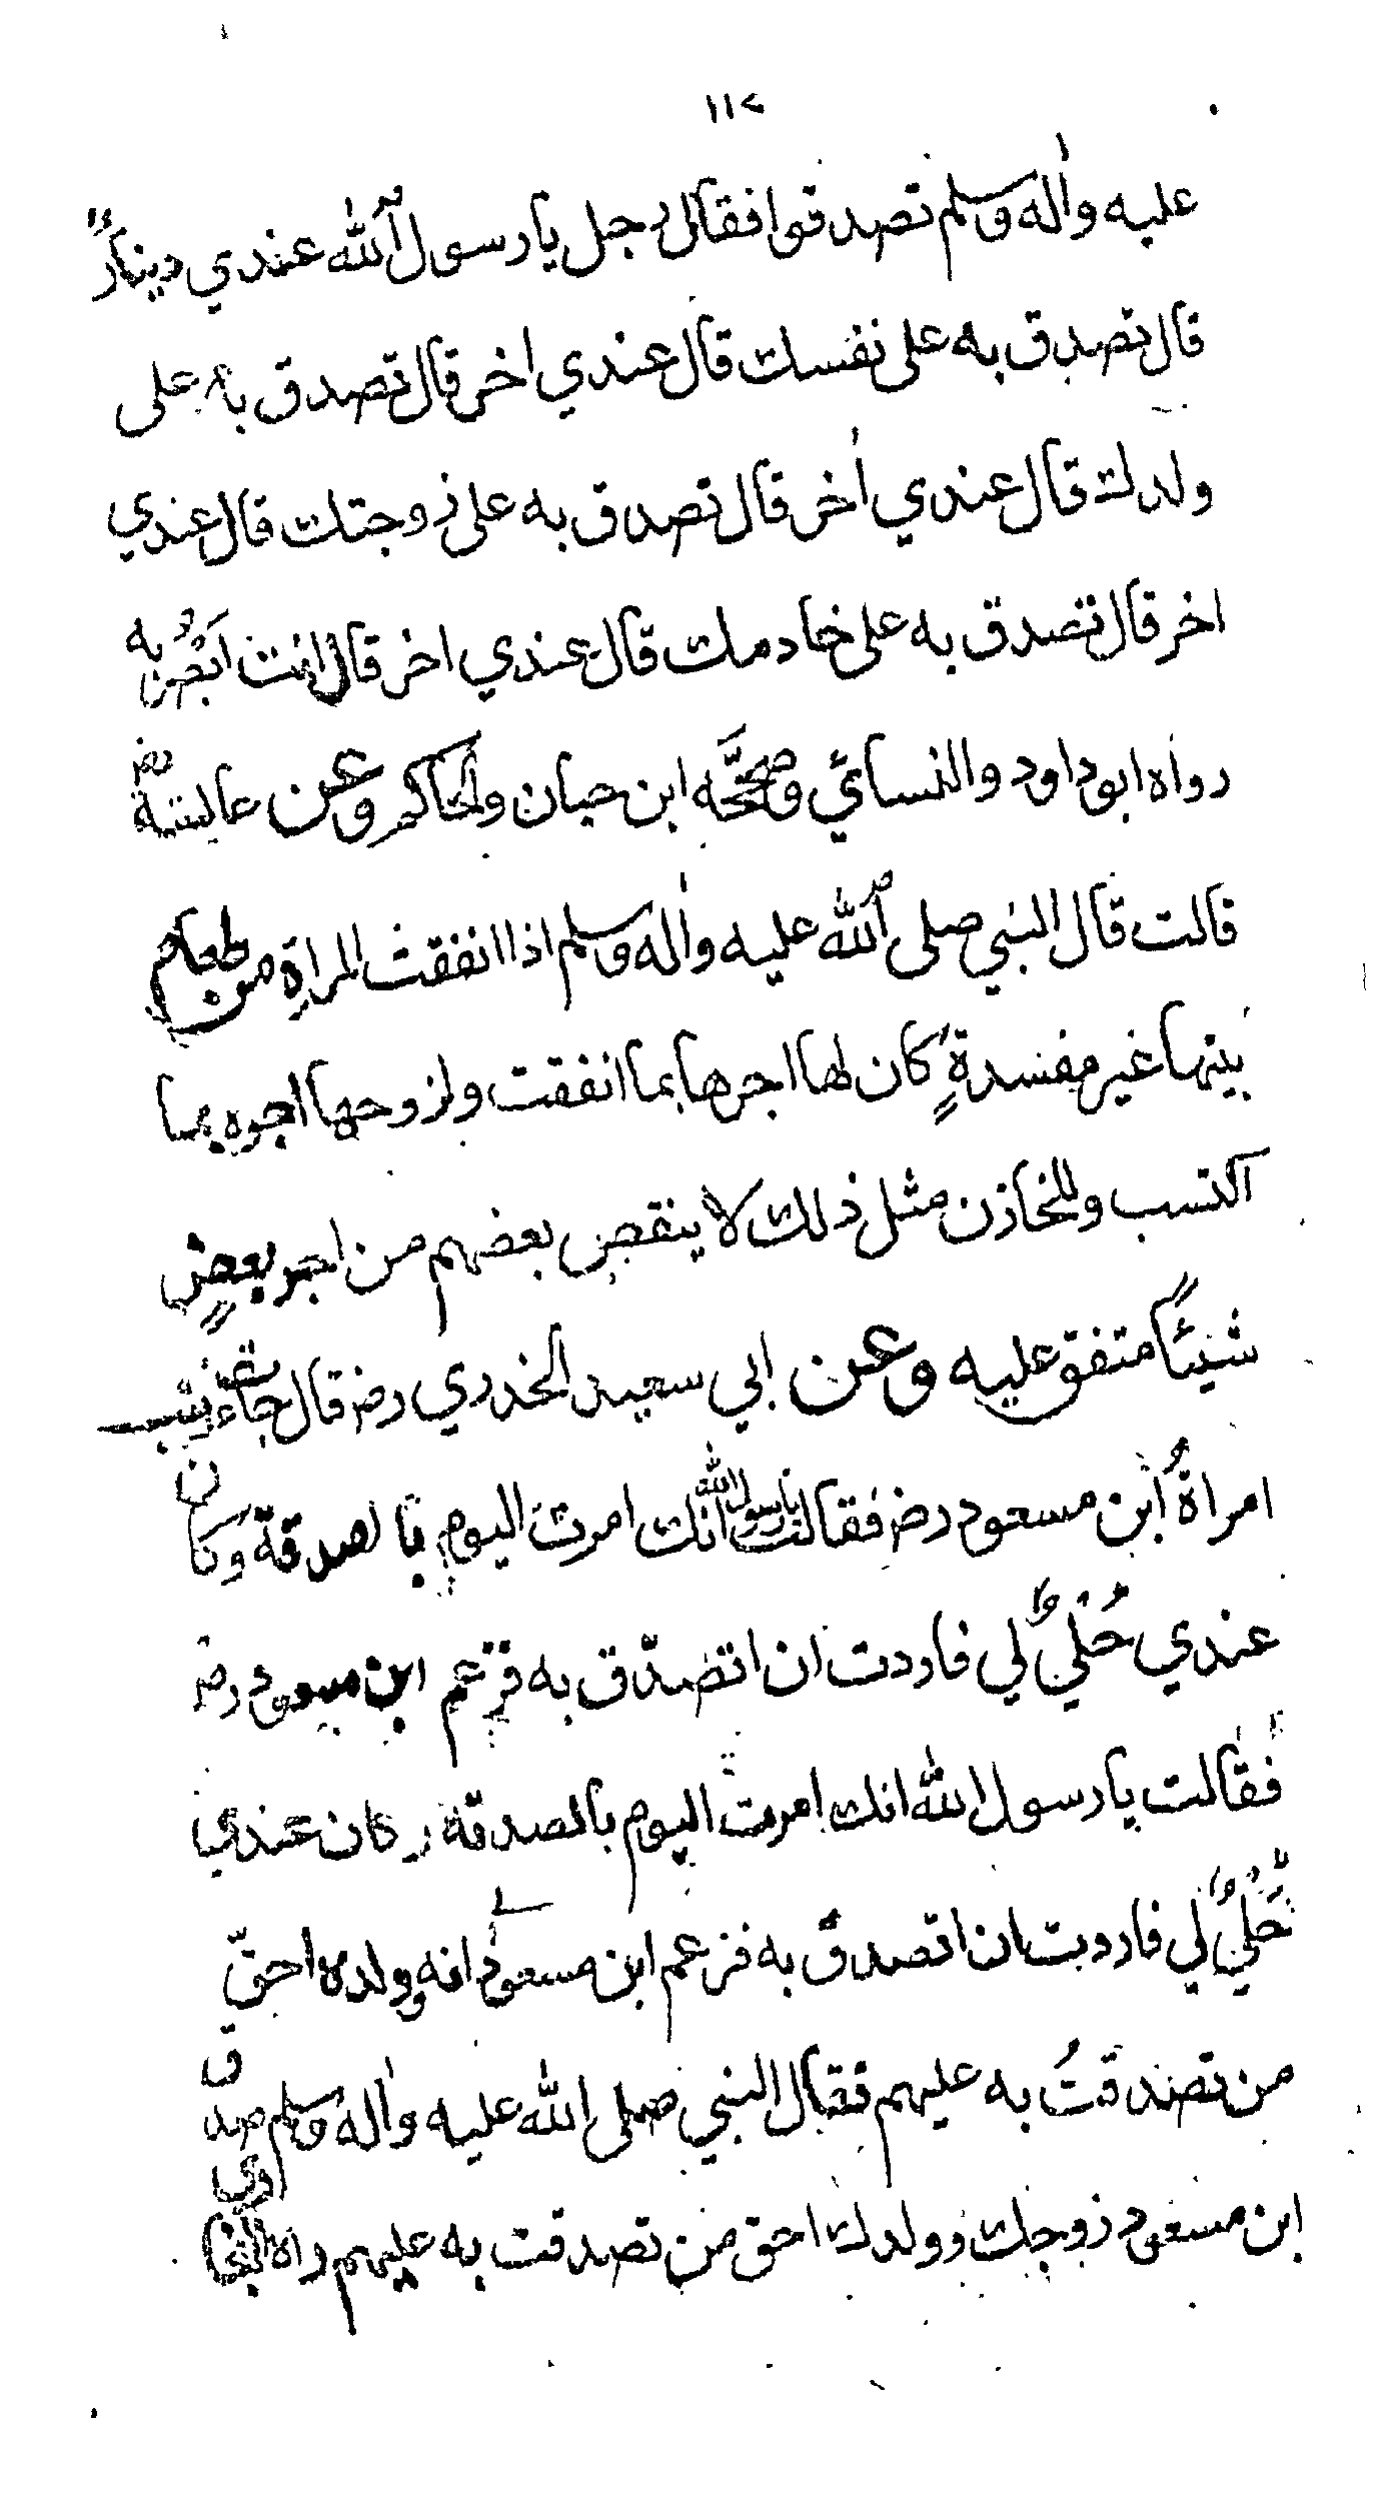 ١١٢
عليه واٰله وسلم تصدقوا فقال رجل يا رسول اللّٰه عندي دينارٌ
قال تصدق به على نفسك قال عندي اخر قال تصدق به على
ولدك قال عندي اٰخر قال تصدق به على زوجتك قال عندي
اخر قال تصدق به على خادمك قال عندي اخر قال انت ابصُر به
رواه ابوداود والنسائي وصحَّحَه ابن حبان والحاكم وعن عايشة رض
قالت قال النبي صلى اللّٰه عليه واٰله وسلم اذا انفقت المراة من طعام
بيتها غير مفسدةٍ كان لها اجرها بما انفقت ولزوجها اجره بما
اكتسب وللخازن مثل ذلك لا ينقص بعضهم من اجر بعضٍ
شيئًا متفق عليه وعن ابي سعيد الخدري رض قال جاءت زينب
امراةُ ابن مسعود رض فقالت يا رسول الله انك امرت اليوم بالصدقة وكان
عندي حُليٌ لي فاردت ان اتصدّق به فزعم ابن مسعود رض
فقالت يا رسول الله انك امرت اليوم بالصدقة وكان عندي
حُليٌ لي فاردت ان اتصدق به فزعم ابن مسعود انه وولده احقّ
من تصدقتُ به عليهم فقال النبي صلى الله عليه واٰله وسلم صدق
ابن مسعود زوجك وولدك احق من تصدقت به عليهم رواه البخاري